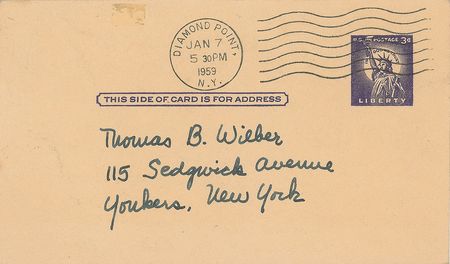 DIAMOND POINT,
JAN 7
5 30 PM
1959
N.Y.
U.S. POSTAGE 3¢
LIBERTY
THIS SIDE OF CARD IS FOR ADDRESS
Thomas B. Wilber
115 Sedgwick Avenue
Yonkers, New York